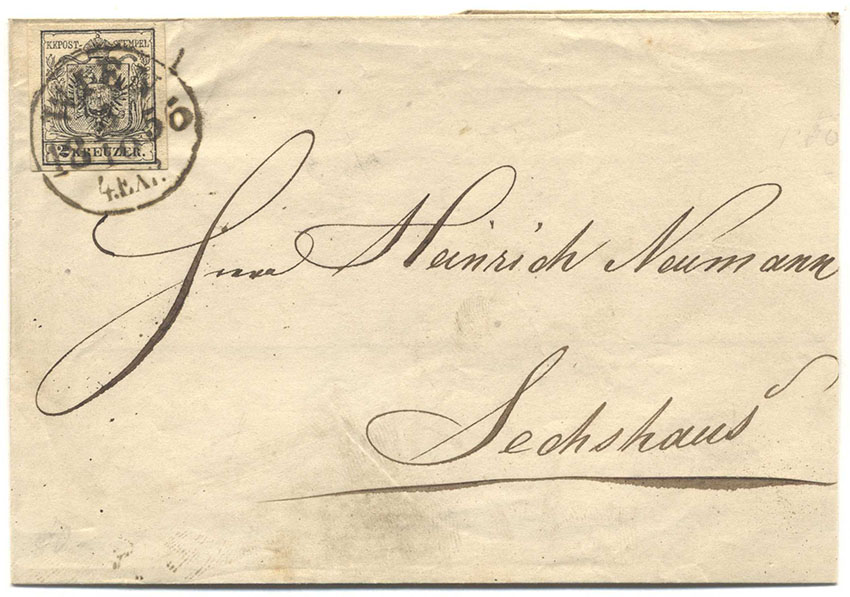 KKPOST-STEMPEL
2 KREUZER.
WIEN
4.EX.
Herrn Heinrich Neumann
Sechshaus